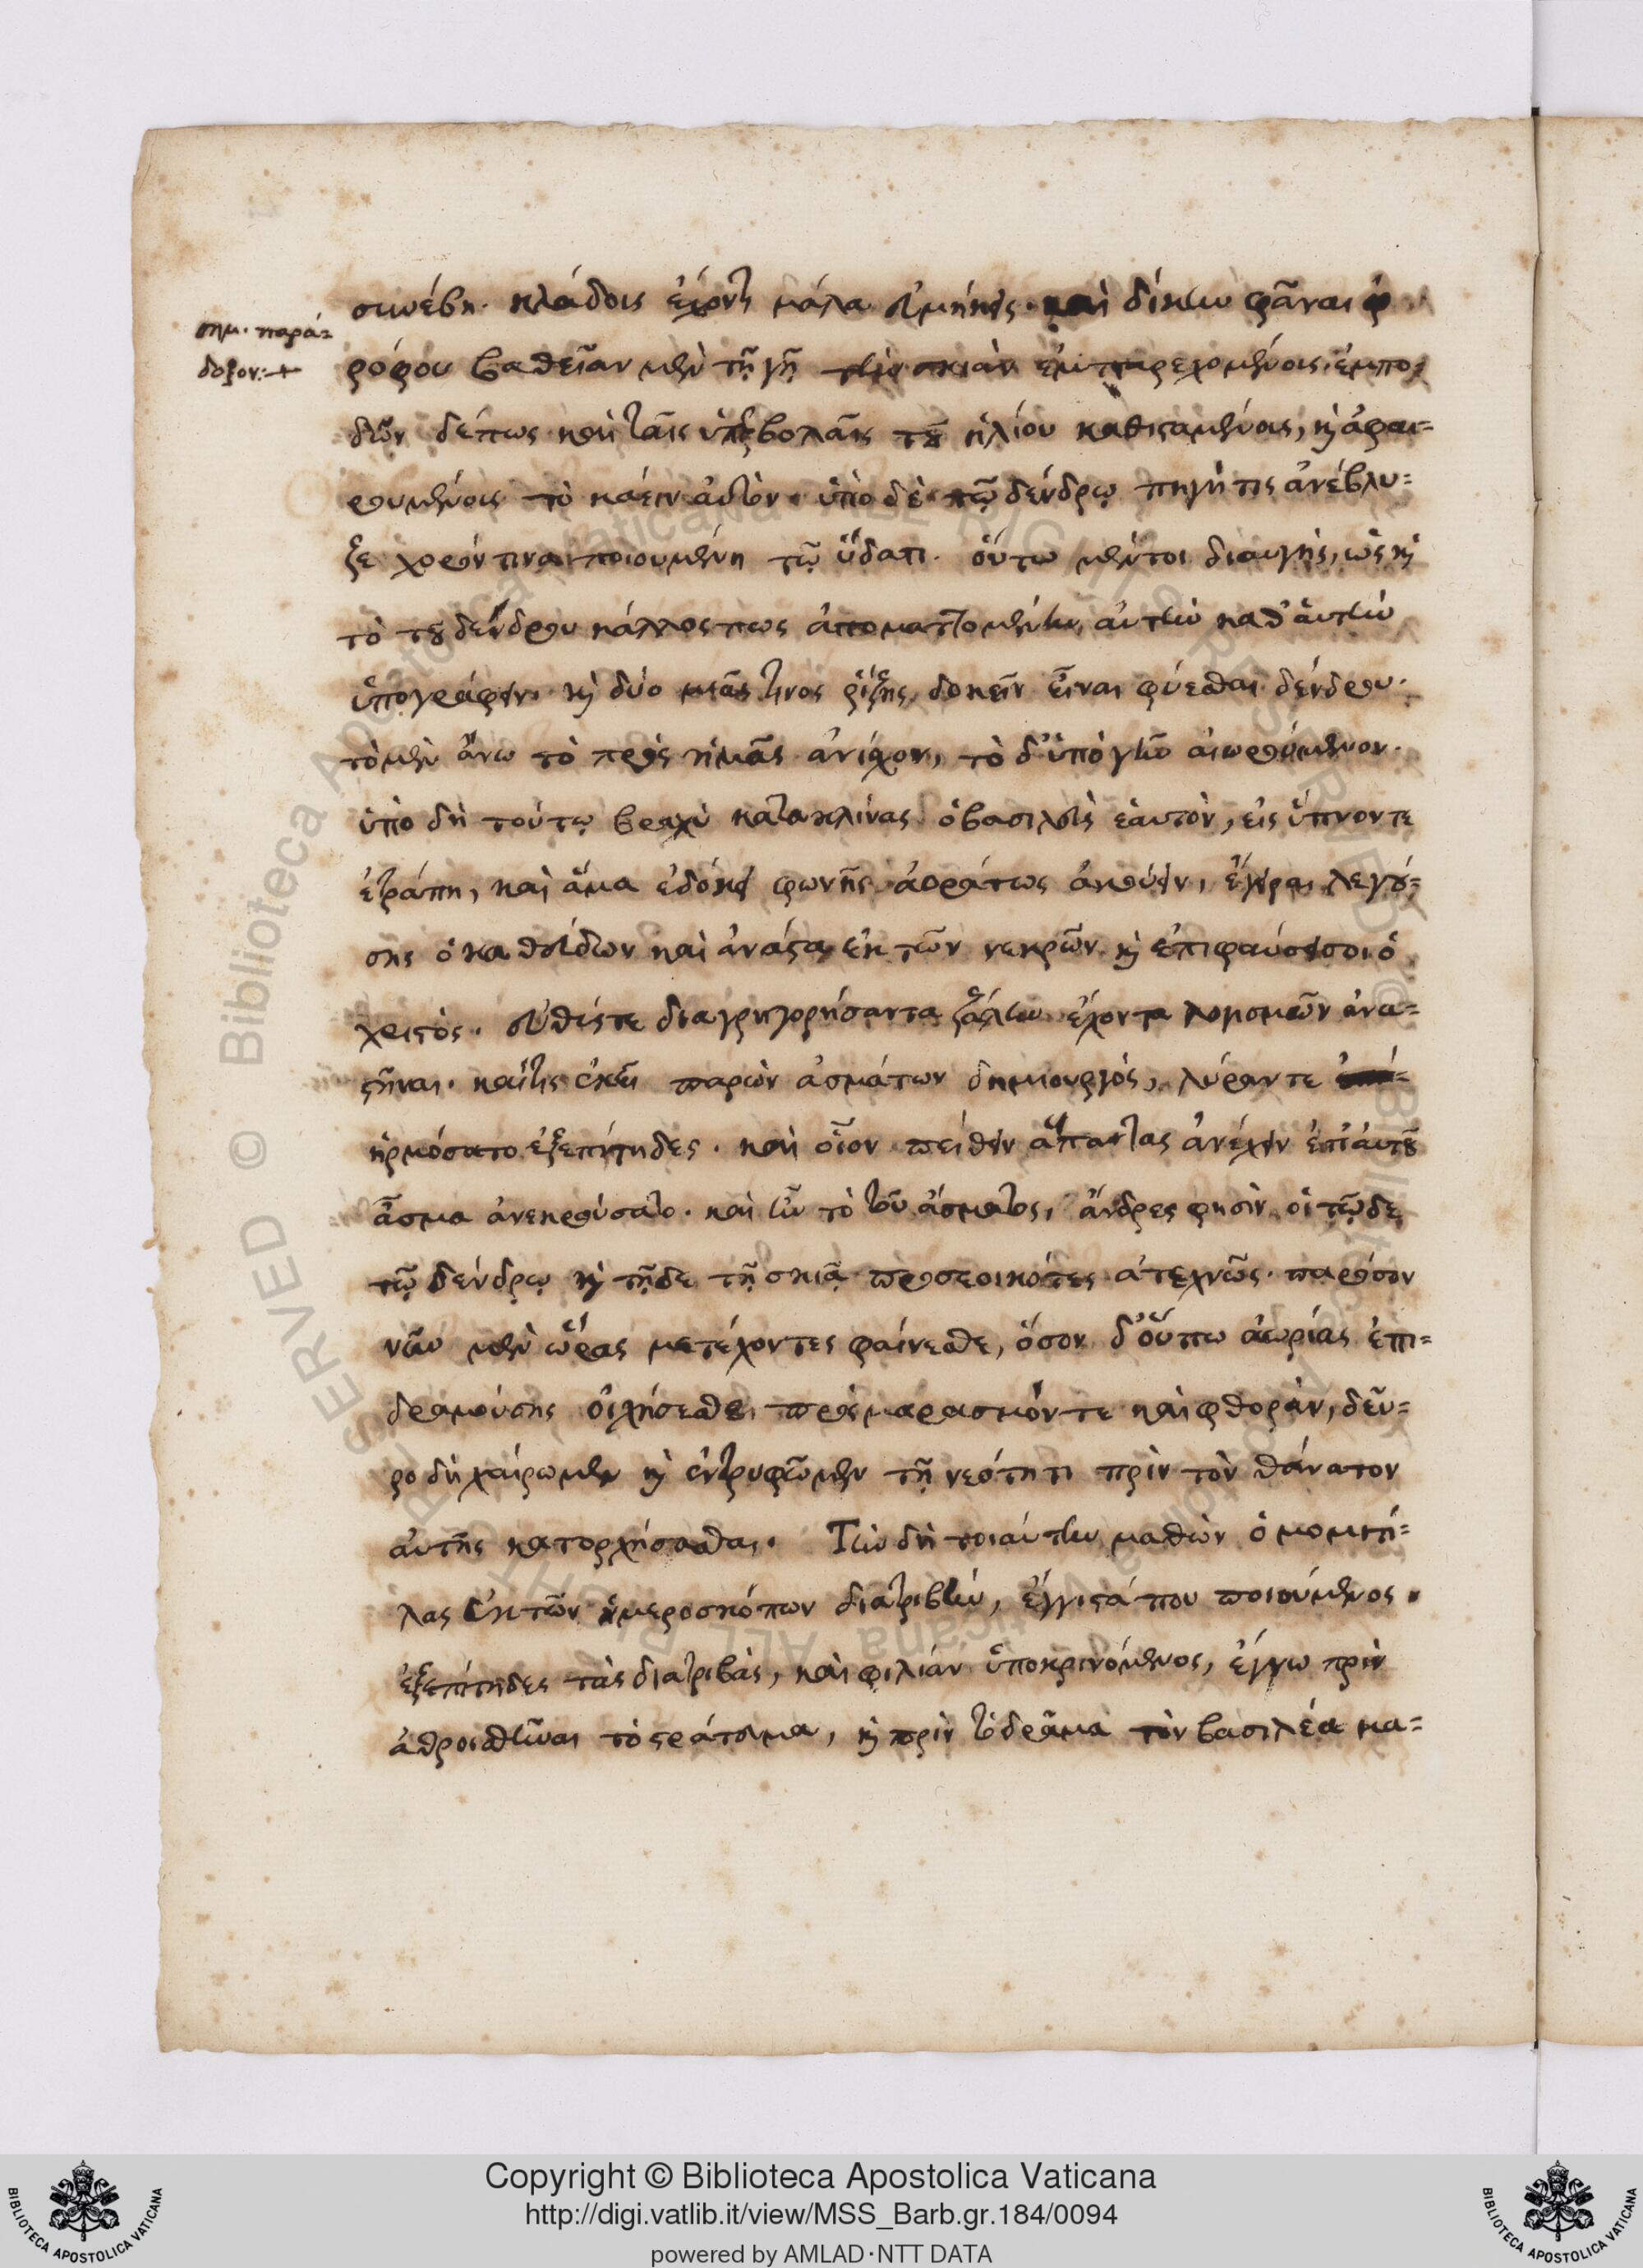 συνέβη. κλάδοις ἔχοντι μάλα εὐμήκεις. καὶ δίκην φᾶναι ὀ
σημ. παρά=
δοξον:+
ρόφου βαθεῖαν μὲν τῇ γῇ τὴν σκιὰν ἐμπαρεχομένοις, ἐμπο=
δὼν δέπως καὶ ταῖς ὑπερβολαῖς τοῦ ἡλίου καθισταμένοις, καὶ ἀφαι=
ρουμένοις τὸ κάειν αὐτὸν. ὑπὸ δὲ τῷ δένδρῳ πηγή τις ἀνέβλυ=
ζε χορόν τινα ποιουμένη τῷ ὕδατι. οὕτω μέντοι διαυγὴς, ὡς καὶ
τὸ τοῦ δένδρου κάλλος πως ἀποματτομένην αὐτὴν καθ' ἁυτὴν
ὑπογράφειν. καὶ δύο μιᾶς τινος ῥίζης δοκεῖν εἶναι φύεσθαι δένδρου.
τὸ μὲν ἄνω τὸ πρὸς ἡμᾶς ἀνίσχον, τὸ δ' ὑπὸ γῆν αἰωρούμενον.
ὑπὸ δὴ τούτῳ βραχὺ κατακλίνας ὁ βασιλεὺς ἑαυτὸν, εἰς ὕπνον τε
ἐτράπη, καὶ ἅμα ἐδόκει φωνῆς ἀοράτως ἀκούειν, ἔγειραι λεγού=
σης ὁ καθεύδων καὶ ἀνάστα ἐκ τῶν νεκρῶν καὶ ἐπιφαύσει σοι ὁ
χριστὸς. εὐθύς τε διαγρηγορήσαντα ζάλην ἔχοντα λογισμῶν ἀνα=
στῆναι. καί τις ἐκεῖ παρὼν ἀσμάτων δημιουργὸς, λύραν τε
ἡρμόσατο ἐξεπίτηδες. καὶ οἷον πείθειν ἅπαντας ἀνέχειν ἐπ' αὐτοῦ
ἆσμα ἀνεκρούσατο. καὶ ἦν τὸ τοῦ ἄσματος, ἄνδρες φησὶν οἱ τῷδε
τῷ δένδρῳ καὶ τῇδε τῇ σκιᾷ προσεοικότες ἀτεχνῶς. παρόσον
νῦν μὲν ὥρας μετέχοντες φαίνεσθε, ὅσον δ' οὔπω ἀωρίας ἐπι=
δραμούσης οἰχήσεσθε πρὸς μαρασμόν τε καὶ φθορὰν, δεῦ=
ρο δὴ χαίρωμεν καὶ ἐντρυφῶμεν τῇ νεότητι πρὶν τὸν θάνατον
αὐτῆς κατορχήσασθαι. Τὴν δὴ τοιαύτην μαθὼν ὁ μομιτζί=
λας ἐκ τῶν ἡμεροσκόπων διατριβὴν, ἔγγιστά που ποιούμενος
ἐξεπίτηδες τὰς διατριβὰς, καὶ φιλίαν ὑποκρινόμενος, ἔγνω πρὶν
ἀθροισθῆναι τὸ στράτευμα, καὶ πρὶν τὸ δρᾶμα τὸν βασιλέα κα=
Copyright © Biblioteca Apostolica Vaticana
http://digi.vatlib.it/view/MSS_Barb.gr.184/0094
powered by AMLAD·NTT DATA